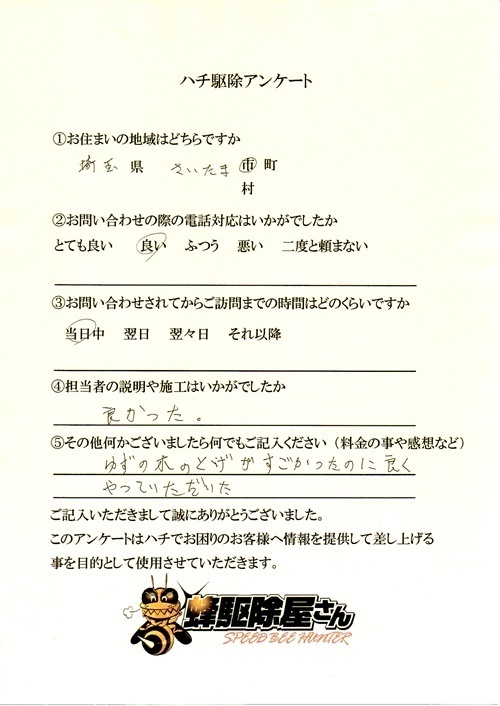 ハチ駆除アンケート
①お住まいの地域はどちらですか
埼玉 県 さいたま 市 町
村
②お問い合わせの際の電話対応はいかがでしたか
とても良い 良い ふつう 悪い 二度と頼まない
③お問い合わせされてからご訪問までの時間はどのくらいですか
当日中 翌日 翌々日 それ以降
④担当者の説明や施工はいかがでしたか
良かった。
⑤その他何かございましたら何でもご記入ください（料金の事や感想など）
ゆずの木のとげがすごかったのに良く
やっていただいた
ご記入いただきまして誠にありがとうございました。
このアンケートはハチでお困りのお客様へ情報を提供して差し上げる
事を目的として使用させていただきます。
蜂駆除屋さん
SPEED BEE HUNTER